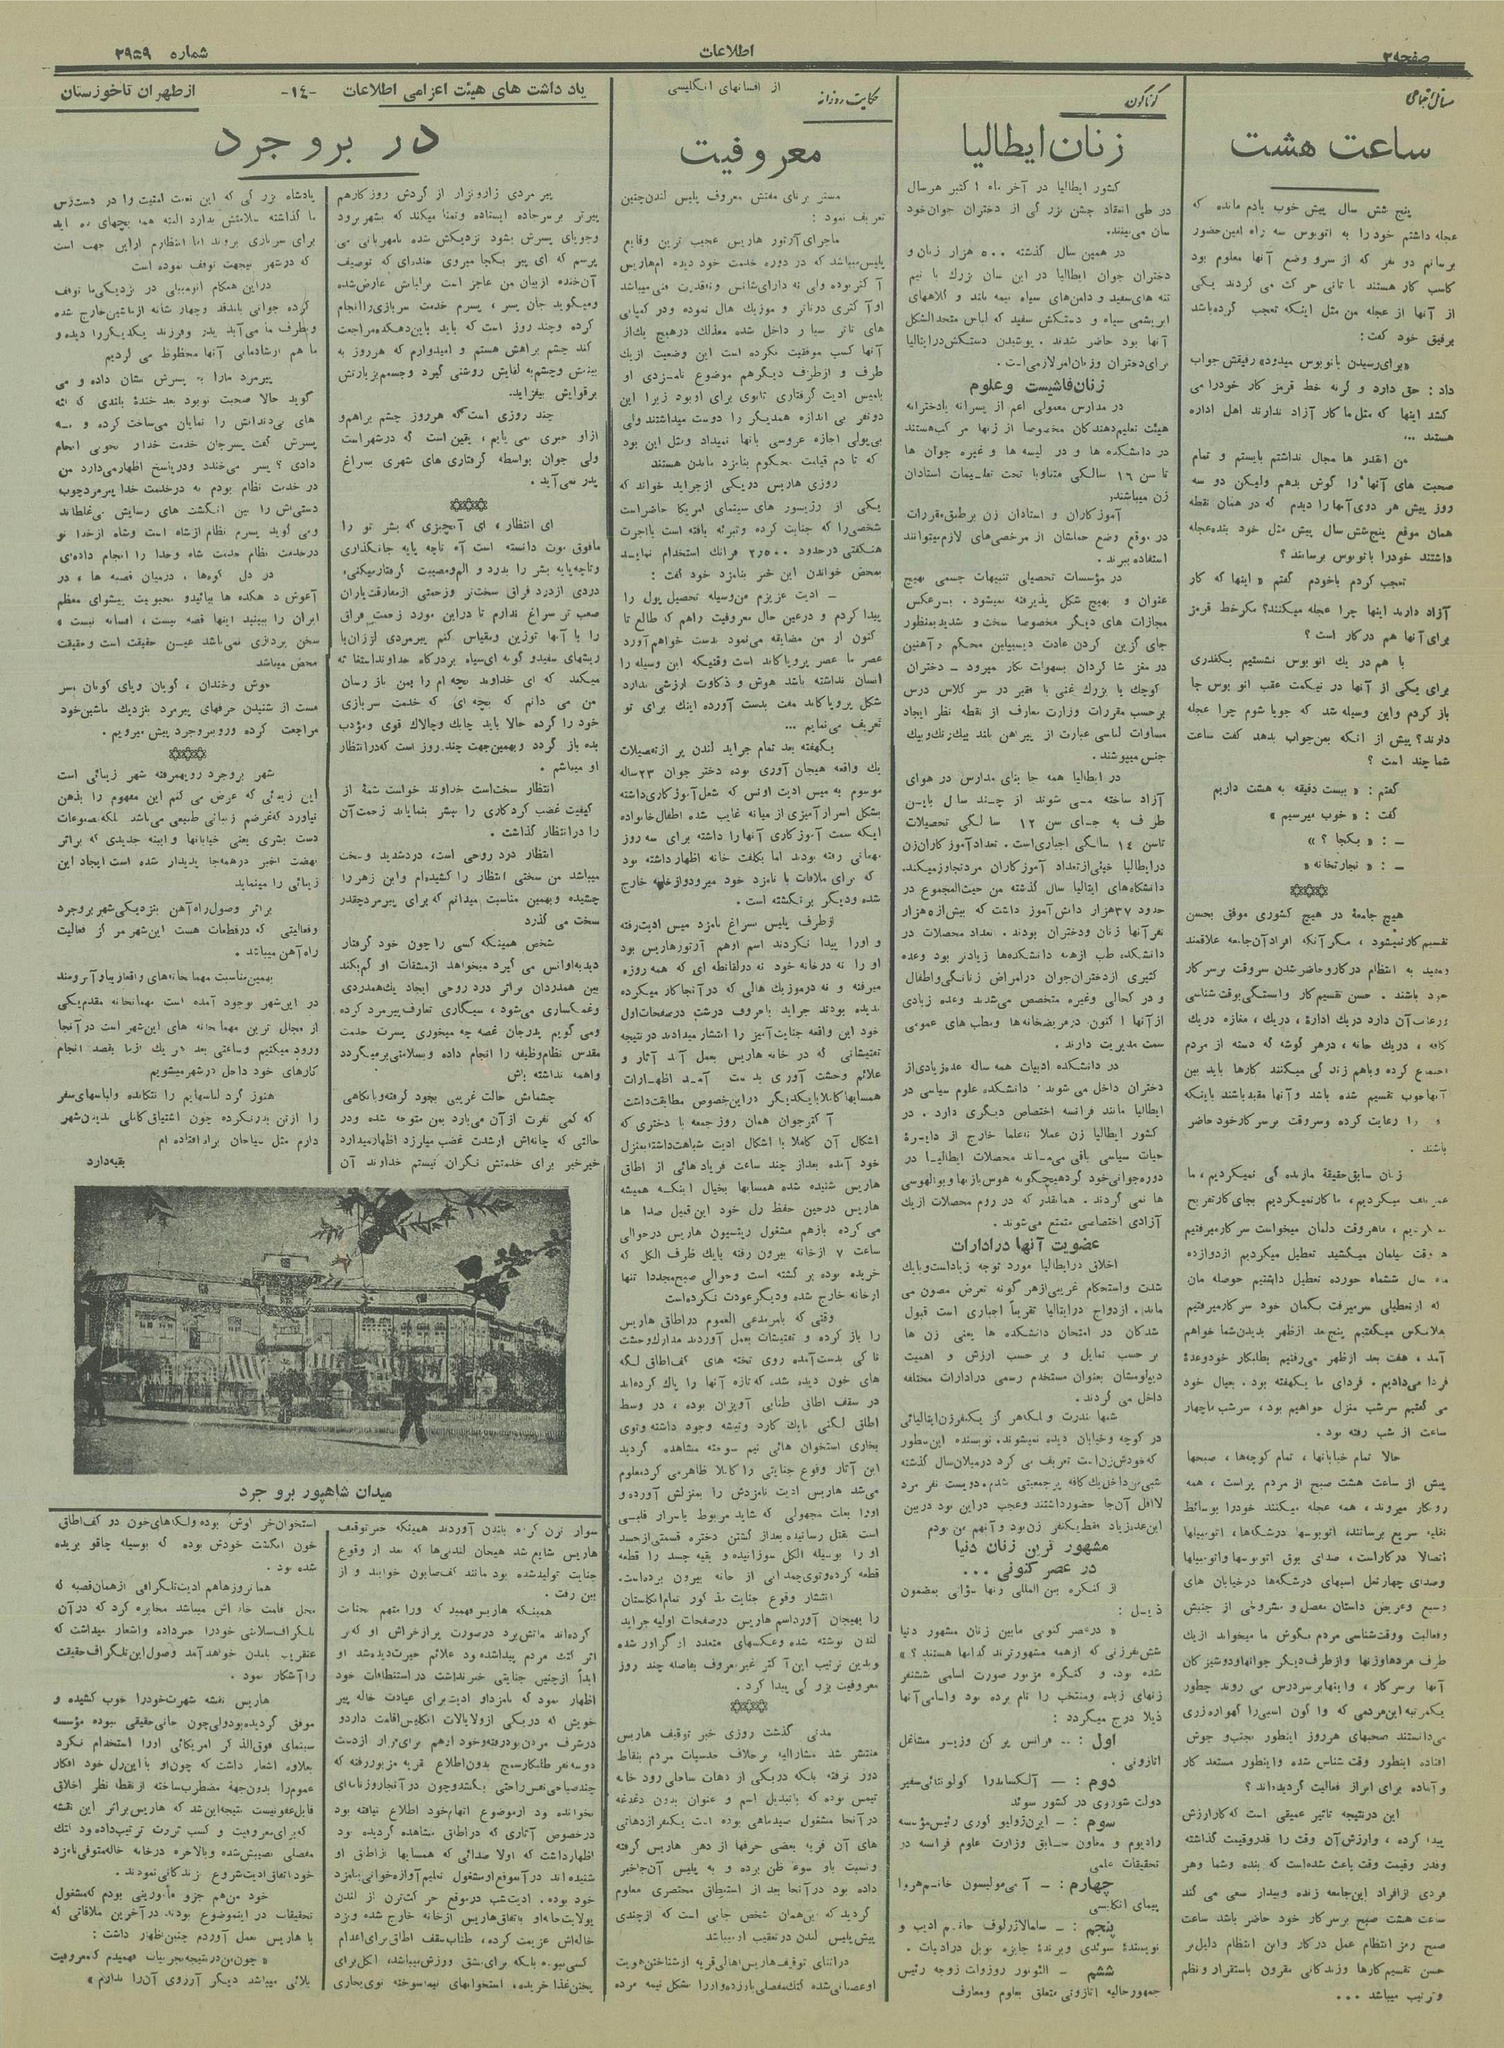 صفحه ۲
اطلاعات
شماره ۲۹۵۹
مسائل اجتماعی
ساعت هشت
پنج شش سال پیش خوب یادم مانده که
عجله داشتم خود را به اتوبوس سه راه امین حضور
برسانم دو نفر که از سر و وضع آنها معلوم بود
کاسب کار هستند با تانی حرکت می کردند یکی
از آنها از عجله من مثل اینکه تعجب کرده باشد
برفیق خود گفت:
«برای رسیدن باتوبوس میدود» رفیقش جواب
داد: حق دارد و گرنه خط قرمز کار خود را می
کشد اینها که مثل ما کار آزاد ندارند اهل اداره
هستند ...
من آنقدر ها مجال نداشتم بایستم و تمام
صحبت های آنها را گوش بدهم ولیکن دو سه
روز پیش هر دوی آنها را دیدم که در همان نقطه
همان موقع پنج شش سال پیش مثل خود بنده عجله
داشتند خود را باتوبوس برسانند؟
تعجب کردم باخودم گفتم «اینها که کار
آزاد دارند اینها چرا عجله میکنند؟ مگر خط قرمز
برای آنها هم در کار است؟
با هم در یک اتوبوس نشستیم یکقدری
برای یکی از آنها در نیمکت عقب اتوبوس جا
باز کردم و این وسیله شد که جویا شوم چرا عجله
دارند؟ پیش از آنکه بمن جواب بدهد گفت ساعت
شما چند است؟
گفتم: «بیست دقیقه به هشت داریم
گفت: «خوب میرسیم»
ـ: «بکجا؟»
ـ: «تجارتخانه»
هیچ جامعهٔ در هیچ کشوری موفق بحسن
تقسیم کار نمیشود، مگر آنکه افراد آن جامعه علاقمند
و مقید به انتظام در کار و حاضر شدن سر وقت بر سر کار
خود باشند. حسن تقسیم کار وابستگی بوقت شناسی
و رعایت آن دارد در یک ادارهٔ، در یک مغازه در یک
کافه، در یک خانه، در هر گوشه که دسته از مردم
اجتماع کرده و باهم زندگی میکنند کارها باید بین
آنها خوب تقسیم شده باشد و آنها مقید باشند باینکه
را رعایت کرده و سر وقت بر سر کار خود حاضر
باشند.
زمان سابق حقیقة ما زنده گی نمیکردیم، ما
میکردیم، ما کار نمیکردیم بجای کار تفریح
هر وقت دلمان میخواست سر کار میرفتیم
وقت میلمان میکشید تعطیل میکردیم از دوازده
ماه سال ششماه خورده تعطیل داشتیم حوصله مان
که از تعطیلی سر میرفت بگمان خود سر کار میرفتیم
بهر کس میگفتیم پنج بعد از ظهر بدیدن شما خواهم
آمد، هفت بعد از ظهر می رفتیم بطلبکار خود وعدهٔ
فردا می دادیم. فردای ما یکهفته بود. بعیال خود
می گفتیم سر شب منزل خواهیم بود، سر شب ما چهار
ساعت از شب رفته بود.
حالا تمام خیابانها، تمام کوچه ها، صبحها
پیش از ساعت هشت صبح از مردم پر است، همه
رو بکار میروند، همه عجله میکنند خود را بوسائط
نقلیه سریع برسانند، اتوبوسها درشکه ها، اتومبیلها
اتصالا در کار است، صدای بوق اتوبوسها و اتومبیلها
و صدای چهار نعل اسبهای درشکه ها در خیابان های
وسیع و عریض داستان مفصل و مشروحی از جنبش
و فعالیت و وقت شناسی مردم بگوش ما میخواند از یک
طرف مردها و زنها و از طرف دیگر جوانها و دوشیزگان
آنها بر سر کار، و اینها بر سر درس می روند چطور
یکمرتبه این مردمی که واگون اسبی را گهواره زری
می دانستند صبحهای هر روز اینطور بجنب و جوش
افتاده اینطور وقت شناس شده و اینطور مستعد کار
و آماده برای ابراز فعالیت گردیده اند؟
این در نتیجه تاثیر عمیقی است که کار ارزش
پیدا کرده، و ارزش آن وقت را قدر و قیمت گذاشته
و قدر و قیمت وقت باعث شده است که بنده و شما و هر
فردی از افراد این جامعه زنده و بیدار سعی می کند
ساعت هشت صبح بر سر کار خود حاضر باشد ساعت
صبح رمز انتظام عمل در کار و این انتظام دلیل بر
حسن تقسیم کارها و زندگانی مقرون باستقرار و نظم
و ترتیب میباشد ...
گوناگون
زنان ایطالیا
کشور ایطالیا در آخر ماه اکتبر هر سال
در طی انعقاد جشن بزرگی از دختران جوان خود
سان می بیند.
در همین سال گذشته ۵۰۰ هزار زنان و
دختران جوان ایطالیا در این سان بزرگ با نیم
تنه های سفید و دامن های سیاه نیمه بلند و کلاههای
ابریشمی سیاه و دستکش سفید که لباس متحدالشکل
آنها بود حاضر شدند. پوشیدن دستکش در ایطالیا
برای دختران و زنان امر لازمی است.
زنان فاشیست و علوم
در مدارس معمولی اعم از پسرانه یا دخترانه
هیئت تعلیم دهندگان مخصوصا از زنها مرکب هستند
در دانشکده ها و در لیسه ها و غیره جوان ها
تا سن ۱۶ سالگی متناوبا تحت تعلیمات استادان
زن میباشند.
آموزگاران و استادان زن بر طبق مقررات
در موقع وضع حملشان از مرخصی های لازم میتوانند
استفاده ببرند.
در مؤسسات تحصیلی تنبیهات جسمی بهیچ
عنوان و بهیچ شکل پذیرفته نمیشود. برعکس
مجازات های دیگر مخصوصا سخت و شدید بمنظور
جای گزین کردن عادت دیسیپلین محکم و آهنین
در مغز شاگردان بسهولت بکار میرود ـ دختران
کوچک یا بزرگ غنی یا فقیر در سر کلاس درس
بر حسب مقررات وزارت معارف از نقطه نظر ایجاد
مساوات لباسی عبارت از پیراهن بلند بیک رنگ و بیک
جنس میپوشند.
در ایطالیا همه جا بنای مدارس در هوای
آزاد ساخته می شوند از چند سال باین
طرف به جای سن ۱۲ سالگی تحصیلات
تا سن ۱۴ سالگی اجباری است. تعداد آموزگاران زن
در ایطالیا خیلی از تعداد آموزگاران مرد تجاوز میکند.
دانشگاه های ایطالیا سال گذشته من حیث المجموع در
حدود ۳۷ هزار دانش آموز داشت که بیش از ۵ هزار
نفر آنها زنان و دختران بودند. تعداد محصلات در
دانشکده طب از همه دانشکده ها زیادتر بود و عده
کثیری از دختران جوان در امراض زنانگی و اطفال
و در کحالی و غیره متخصص می شدند و عده زیادی
از آنها اکنون در مریضخانه ها و مطب های عمومی
سمت مدیریت دارند.
در دانشکده ادبیات همه ساله عده زیادی از
دختران داخل می شوند. دانشکده علوم سیاسی در
ایطالیا مانند فرانسه اختصاص دیگری دارد. در
کشور ایطالیا زن عملا و علما خارج از دایرهٔ
حیات سیاسی باقی می ماند محصلات ایطالیا در
دوره جوانی خود گرد هیچگونه هوس بازیها و بوالهوسی
ها نمی گردند. همانقدر که در روم محصلات از یک
آزادی اختصاصی متمتع می شوند.
عضویت آنها در ادارات
اخلاق در ایطالیا مورد توجه زیاد است و بایک
شدت و استحکام غریبی از هر گونه تعرض مصون می
ماند. ازدواج در ایتالیا تقریباً اجباری است قبول
شدگان در امتحان دانشکده ها یعنی زن ها
بر حسب تمایل و بر حسب ارزش و اهمیت
دیپلومشان بعنوان مستخدم رسمی در ادارات مختلفه
داخل می گردند.
شبها بندرت و بلکه هرگز یکنفر زن ایتالیائی
در کوچه و خیابان دیده نمیشوند. نویسنده این سطور
که خودش زن است تعریف می کرد در میلان سال گذشته
شبی من داخل یک کافه پر جمعیتی شدم. دویست نفر مرد
لااقل آن جا حضور داشتند و عجب در این بود در بین
این عده زیاد فقط یکنفر زن بود و آنهم من بودم
مشهور ترین زنان دنیا
در عصر کنونی ...
از کنگره بین المللی زنها سؤالی بمضمون
ذیل:
«در عصر کنونی مابین زنان مشهور دنیا
شش نفر زنی که از همه مشهور ترند کدامها هستند؟»
شده بود. و کنگره مزبور صورت اسامی ششنفر
زنهای زبده و منتخب را نام برده بود و اسامی آنها
ذیلا درج میگردد:
اول: ـ فرانس پرکن وزیر مشاغل
اتازونی.
دوم: ـ آلکساندرا کولونتائی سفیر
دولت شوروی در کشور سوئد
سوم: ـ ایرن ژولیو کوری رئیس مؤسسه
رادیوم و معاون سابق وزارت علوم فرانسه در
تحقیقات علمی
چهارم: ـ آمی مولیسون خانم هوا
پیمای انگلیسی
پنجم: ـ سلمالاژرلوف خانم ادیب و
نویسندهٔ سوئدی و برندهٔ جایزه نوبل در ادبیات.
ششم ـ الئونور روزولت زوجه رئیس
جمهور حالیه اتازونی متعلق بعلوم و معارف
حکایت روزانه
از افسانهای انگلیسی
معروفیت
مستر برنای مفتش معروف پلیس لندن چنین
تعریف نمود:
ماجرای آرتور هاریس عجیب ترین وقایع
پلیس میباشد که در دوره خدمت خود دیده ام هاریس
آکتر بوده ولی نه دارای شانس و نه قدرت فنی میباشد
او آکتری در تاتر و موزیک هال نموده و در کمپانی
های تاتر سیار داخل شده معذلک در هیچ یک از
آنها کسب موفقیت نکرده است این وضعیت از یک
طرف و از طرف دیگر هم موضوع نامزدی او
بامیس ادیت گرفتاری ثانوی برای او بود زیرا این
دو نفر بی اندازه همدیگر را دوست میداشتند ولی
بی پولی اجازه عروسی بآنها نمیداد و مثل این بود
که تا دم قیامت محکوم بنامزد ماندن هستند
روزی هاریس در یکی از جراید خواند که
یکی از رژیسور های سینمای امریکا حاضر است
شخصی را که جنایت کرده و تبرئه یافته است با اجرت
هنگفتی در حدود ۲٫۵۰۰ فرانک استخدام نماید
بمحض خواندن این خبر بنامزد خود گفت:
ـ ادیت عزیزم من وسیله تحصیل پول را
پیدا کردم و در عین حال معروفیت را هم که طالع تا
کنون از من مضایقه می نمود بدست خواهم آورد
عصر ما عصر پروپاکاند است وقتیکه این وسیله را
انسان نداشته باشد هوش و ذکاوت ارزشی ندارد
شکل پروپاکاند مفت بدست آورده اینک برای تو
تعریف می نمایم ...
یکهفته بعد تمام جراید لندن پر از تفصیلات
یک واقعه هیجان آوری بوده دختر جوان ۲۳ ساله
موسوم به میس ادیت اونس که شغل آموزکاری داشته
بشکل اسرار آمیزی از میانه غایب شده اطفال خانواده
ایکه سمت آموزکاری آنها را داشته برای سه روز
بهمانی رفته بودند اما بکلفت خانه اظهار داشته بود
که برای ملاقات با نامزد خود میرود و از خانه خارج
شده و دیگر برنگشته است.
از طرف پلیس سراغ نامزد میس ادیت رفته
و او را پیدا نکردند اسم او هم آرتور هاریس بود
او را نه در خانه خود نه در لقانطه ای که همه روزه
میرفته و نه در موزیک هالی که در آنجا کار میکرده
ندیده بودند جراید با حروف درشت در صفحات اول
خود این واقعه جنایت آمیز را انتشار میدادند در نتیجه
تفتیشاتی که در خانه هاریس بعمل آمد آثار و
علائم وحشت آوری بدست آمد اظهارات
همسایها کاملا با یکدیگر در این خصوص مطابقت داشت
آکتر جوان همان روز جمعه با دختری که
اشکال آن کاملا با اشکال ادیت شباهت داشته بمنزل
خود آمده بعد از چند ساعت فریاد هائی از اطاق
هاریس شنیده شده همسایها بخیال اینکه همیشه
هاریس در حین حفظ رل خود این قبیل صدا ها
می کرده بازهم مشغول رپتسیون هاریس در حوالی
ساعت ۷ از خانه بیرون رفته بایک ظرف الکل که
خریده بوده برگشته است و حوالی صبح مجددا تنها
از خانه خارج شده و دیگر عودت نکرده است
وقتی که بامر مدعی العموم در اطاق هاریس
را باز کرده و تفتیشات بعمل آوردند مدارک وحشت
ناکی بدست آمده روی تخته های کف اطاق لکه
های خون دیده شد، که تازه آنها را پاک کرده اند
در سقف اطاق طنابی آویزان بوده، در وسط
اطاق لگنی بایک کارد و تیشه وجود داشته و توی
بخاری استخوان هائی نیم سوخته مشاهده گردید
این آثار وقوع جنایتی را کاملا ظاهر می کرد معلوم
می شد هاریس ادیت نامزدش را بمنزلش آورده و
او را بعلت مجهولی که شاید مربوط باسرار قلبی
است بقتل رسانیده بعد از کشتن دختره قسمتی از جسد
او را بوسیله الکل سوزانیده و بقیه جسد را قطعه
قطعه کرده و توی چمدانی از خانه بیرون برده است.
انتشار وقوع جنایت مذکور تمام انگلستان
را بهیجان آورد اسم هاریس در صفحات اولیه جراید
لندن نوشته شده و عکسهای متعدد از گراور شده
و بدین ترتیب این آکتر غیر معروف بفاصله چند روز
معروفیت بزرگی پیدا کرد.
مدتی گذشت روزی خبر توقیف هاریس
منتشر شد مشارالیه بر خلاف حدسیات مردم بنقاط
دور نرفته بلکه در یکی از دهات ساحلی رود خانه
تیمس بوده که با تبدیل اسم و عنوان بدون دغدغه
در آنجا مشغول صید ماهی بوده است یکنفر از دهاتی
های آن قریه بعضی حرفها از دهن هاریس گرفته
و نسبت باو سوء ظن برده و به پلیس آن جا خبر
داده بود در آنجا بعد از استنطاق مختصری معلوم
گردید که این همان شخص جانی است که از چندی
پیش پلیس لندن در تعقیب او میباشد
در اثنای توقیف هاریس اهالی قریه از شناختن هویت
او عصبانی شده کتک مفصلی باو زده و او را بشکل نیمه مرده
یادداشت های هیئت اعزامی اطلاعات
-۱۴-
از طهران تا خوزستان
در بروجرد
پیر مردی زار و نزار از گردش روزگار هم
پیر تر بر سر جاده ایستاده و تمنا میکند که بشهر برود
و جویای پسرش بشود نزدیکش شده با مهربانی می
پرسم که ای پیر بکجا میروی خنده ای که توصیف
آن خنده از بیان من عاجز است بر لبانش عارض شده
و میگوید جان پسر، پسرم خدمت سربازی را انجام
کرده و چند روز است که باید باین دهکده مراجعت
کند چشم براهش هستم و امیدوارم که هر روز به
بینمش و چشم به لقایش روشنی گیرد و جسمم بزیارتش
بر قوایش بیفزاید.
چند روزی است که هر روز چشم براهم و
از او خبری نمی یابم، یقین است که در شهر است
ولی جوان بواسطه گرفتاری های شهری سراغ
پدر نمی آید.
ای انتظار، ای آنچیزی که بشر تو را
مافوق موت دانسته است آه تا چه پایه جانگذاری
و تا چه پایه بشر را بدرد و الم و مصیبت گرفتار میکنی.
دردی از درد فراق سخت تر و زحمتی از مفارقت یاران
صعب تر سراغ ندارم تا در این مورد زحمت فراق
را با آنها توزین و مقیاس کنم پیر مردی لرزان با
ریشهای سفید و گونه ای سیاه بدرگاه خداوند استغاثه
میکند که ای خداوند بچه ام را بمن باز رسان
من می دانم که بچه ای که خدمت سربازی
خود را کرده حالا باید چابک و چالاک قوی و مؤدب
بده باز گردد و بهمین جهت چند روز است که در انتظار
او میباشم.
انتظار سخت است خداوند خواست شمهٔ از
کیفیت غضب کردگاری را ببشر بنمایاند زحمت آن
را در انتظار گذاشت.
انتظار درد روحی است، درد شدید و سخت
میباشد من سختی انتظار را کشیده ام و این زهر را
چشیده و بهمین مناسبت میدانم که برای پیر مرد چقدر
سخت می گذرد
شخص همینکه کسی را چون خود گرفتار
دید به او انس می گیرد میخواهد از مشقات او کم بکند
بین همدردان براثر درد روحی ایجاد یک همدردی
و غمگساری می شود، سیگاری تعارف پیر مرد کرده
و می گویم پدر جان غصه چه میخوری پسرت خدمت
مقدس نظام وظیفه را انجام داده و بسلامتی بر میگردد
واهمه نداشته باش
چشمانش حالت غریبی بخود گرفته و بانگاهی
که کمی نفرت از آن می بارد بمن متوجه شده و در
حالتی که چانه اش از شدت غضب میلرزد اظهار میدارد
خیر خیر برای خدمتش نگران نیستم خداوند آن
پادشاه بزرگی که این نعمت امنیت را در دسترس
ما گذاشته سلامتش بدارد البته همه بچهای ما باید
برای سربازی بروند اما انتظارم از این جهت است
که در شهر بیجهت توقف نموده است
در این هنگام اتومبیلی در نزدیکی ما توقف
کرده جوانی بلند قد و چهار شانه از ماشین خارج شده
و بطرف ما می آید پدر و فرزند یکدیگر را دیده و
ما هم از شادمانی آنها محظوظ می گردیم
پیر مرد ما را به پسرش نشان داده و می
گوید حالا صحبت تو بود بعد خندهٔ بلندی که لثه
های بی دندانش را نمایان می ساخت کرده و به
پسرش گفت پسر جان خدمت خدا را بخوبی انجام
دادی؟ پسر می خندد و در پاسخ اظهار می دارد من
در خدمت نظام بودم نه در خدمت خدا پیر مرد چوب
دستی اش را بین انگشت های رسایش می غلطاند
و می گوید پسرم نظام از شاه است و شاه از خدا تو
در خدمت نظام خدمت شاه و خدا را انجام داده ای
در دل کوه ها، در میان قصبه ها، در
آغوش دهکده ها بیائید و محبوبیت پیشوای معظم
ایران را ببینید اینها قصه نیست، افسانه نیست»
سخن پردازی نمی باشد عین حقیقت است و حقیقت
محض میباشد
خوش و خندان، گویان و پای کوبان پسر
مست از شنیدن حرفهای پیر مرد بنزدیک ماشین خود
مراجعت کرده و رو ببروجرد پیش میرویم.
شهر بروجرد رویهمرفته شهر زیبائی است
این زیبائی که عرض می کنم این مفهوم را بذهن
نیاورد که غرضم زیبائی طبیعی می باشد بلکه مصنوعات
دست بشری یعنی خیابانها و ابنیه جدیدی که براثر
نهضت اخیر در همه جا پدیدار شده است ایجاد این
زیبائی را مینماید
براثر وصول راه آهن بنزدیکی شهر بروجرد
و فعالیتی که در قطعات هست این شهر مرکز فعالیت
راه آهن میباشد.
بهمین مناسبت مهمانخانه های واقعا زیبا و آبرومند
در این شهر بوجود آمده است مهمانخانه مقدم یکی
از مجلل ترین مهمانخانه های این شهر است در آنجا
ورود میکنیم و ساعتی بعد هر یک از ما بقصد انجام
کارهای خود داخل در شهر میشویم
هنوز گرد لباسهایم را نتکانده و لباسهای سفر
را از تن بدر نکرده چون اشتیاق کاملی بدیدن شهر
دارم مثل سیاحان براه افتاده ام
بقیه دارد
میدان شاهپور بروجرد
سوار ترن کرده بلندن آوردند همینکه خبر توقیف
هاریس شایع شد هیجان لندنی ها که بعد از وقوع
جنایت تولید شده بود مانند کف صابون خوابید و از
بین رفت.
همینکه هاریس فهمید که او را متهم بجنایت
کرده اند ماتش برد در صورت پر از خراش او که بر
اثر کتک مردم پیدا شده بود علائم حیرت دیده شد او
ابداً از چنین جنایتی خبر نداشت در استنطاقات خود
اظهار نمود که نامزد او ادیت برای عیادت خاله پیر
خویش که در یکی از ولایات انگلیس اقامت دارد و
در شرف مردن بود رفته و خود او هم برای فرار از دست
دو سه نفر طلبکار سمج بدون اطلاع قریه مزبور رفته که
چند صباحی نفس راحتی بکشد و چون در آنجا روزنامه ای
نخوانده بود از موضوع اتهام خود اطلاع نیافته بود
در خصوص آثاری که در اطاق مشاهده گردیده بود
اظهار داشت که اولا صدائی که همسایها از اطاق او
شنیده اند در آن موقع او مشغول تعلیم آوازه خوانی بنامزد
خود بوده. ادیت شب در موقع حرکت ترن از لندن
بولایت خاله او باتفاق هاریس از خانه خارج شده و نزد
خاله اش عزیمت کرده، طناب سقف اطاق برای اعدام
کسی نبوده بلکه برای مشق ورزش میباشد، الکل برای
پختن غذا خریده. استخوانهای نیم سوخته توی بخاری
استخوان خرگوش بوده و لکه های خون در کف اطاق
خون انگشت خودش بوده که بوسیله چاقو بریده
شده بود.
همان روزها هم ادیت تلگرافی از همان قصبه که
محل اقامت خاله اش میباشد مخابره کرد که در آن
تلگراف سلامتی خود را خبر داده و اشعار میداشت که
عنقریب بلندن خواهد آمد وصول این تلگراف حقیقت
را آشکار نمود.
هاریس نقشه شهرت خود را خوب کشیده و
موفق گردیده بود ولی چون جانی حقیقی نبوده مؤسسه
سینمای فوق الذکر امریکائی او را استخدام نکرد
بعلاوه اشعار داشت که چون او با این رل خود افکار
عموم را بدون جهة مضطرب ساخته از نقطه نظر اخلاق
قابل عفو نیست نتیجه این شد که هاریس براثر این نقشه
که برای معروفیت و کسب ثروت ترتیب داده بود کتک
مفصلی نصیبش شده و بالاخره در خانه خاله متوفی نامزد
خود باتفاق ادیت شروع بزندگانی نمودند.
خود من هم جزو مأمورینی بودم که مشغول
تحقیقات در اینموضوع بودند در آخرین ملاقاتی که
با هاریس بعمل آوردم چنین اظهار داشت:
«چون من در نتیجه تجربیات فهمیدم که معروفیت
بلائی میباشد دیگر آرزوی آن را ندارم»